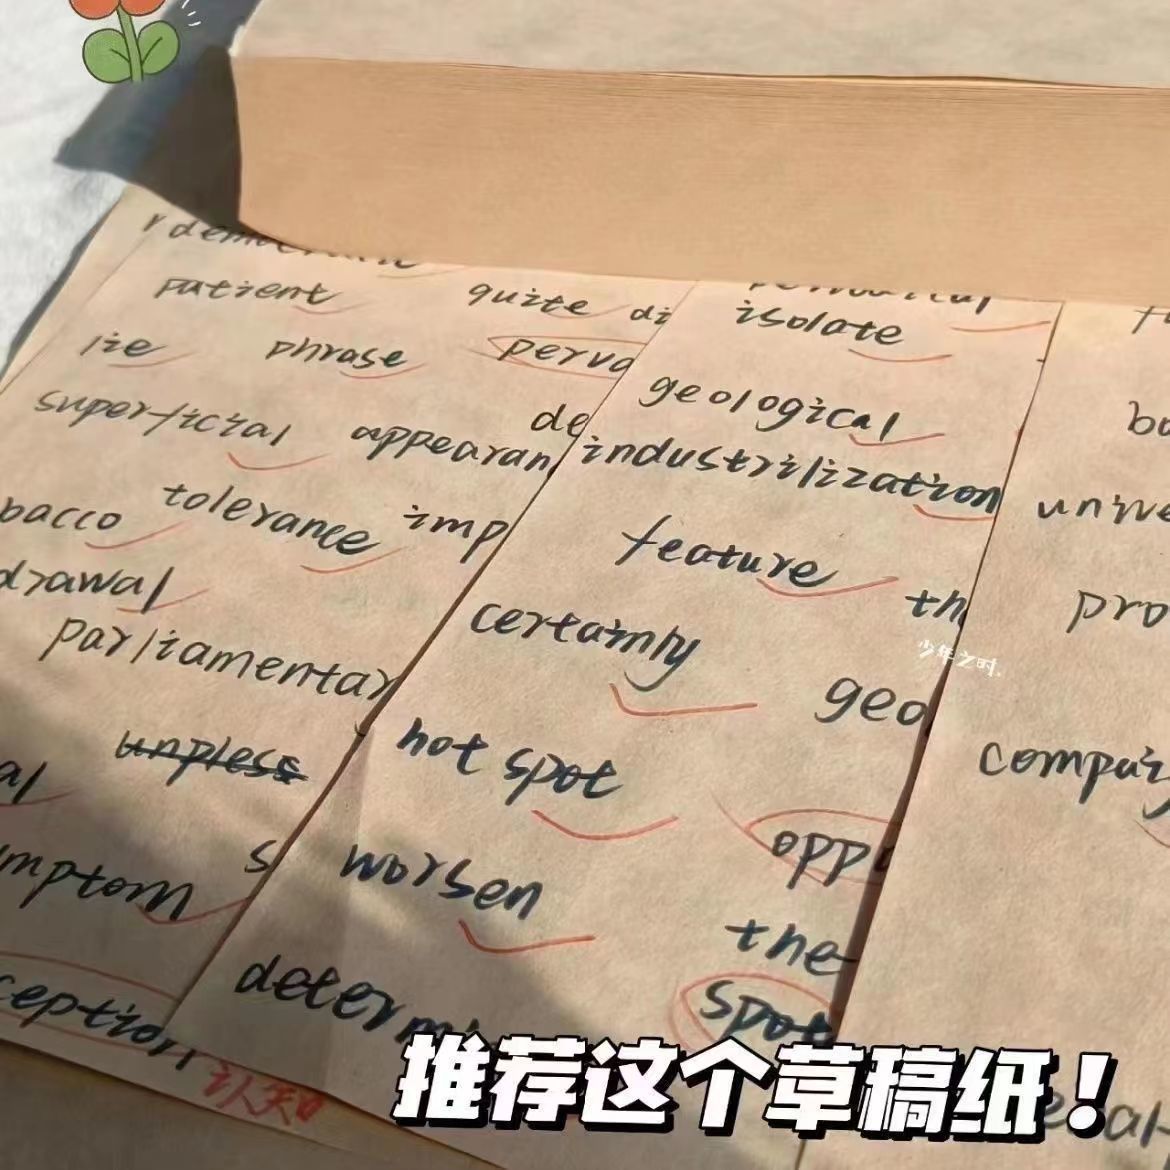 patient quite di
lie phrase perva
superficial appearan
de
bacco tolerance imp
drawal
parliamentar
al unpless
mptom s
ception
认知
isolate
geological
industrilization
feature th
certainly
geo
hot spot
opp
worsen
the
determ spot
unive
pro
少年之时.
推荐这个草稿纸！